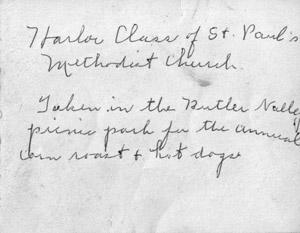 Harloe Class of St. Paul's
Methodist Church.
Taken in the Butler Valley
picnic park for the annual
corn roast + hot dogs